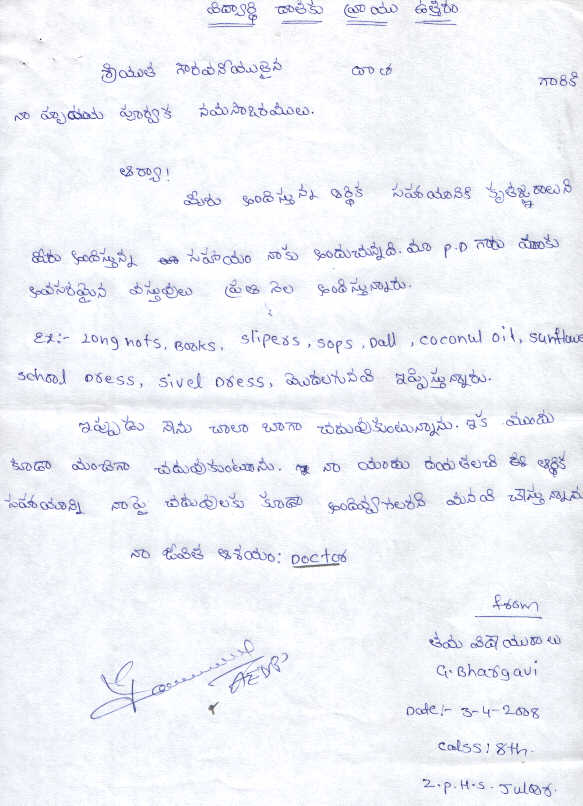 విద్యార్థి దాతకు వ్రాయు ఉత్తరం
శ్రీయుత గౌరవనీయులైన దాత గారికి
నా హృదయ పూర్వక నమస్కారములు.
ఆర్యా!
మీరు అందిస్తున్న ఆర్థిక సహాయానికి కృతజ్ఞురాలుని
మీరు అందిస్తున్న ఈ సహాయం నాకు అందుచున్నది. మా P.D గారు మాకు
అవసరమైన వస్తువులు ప్రతి నెల అందిస్తున్నారు.
Ex:- Longnots, Books, slipers, sops, Dall, coconul oil, sunflowe
school Dress, sivel Dress, మొదలగునవి ఇప్పిస్తున్నారు.
ఇప్పుడు నేను చాలా బాగా చదువుకుంటున్నాను. ఇక ముందు
కూడా మంచిగా చదువుకుంటాను. నా యందు దయతలచి ఈ ఆర్థిక
సహాయాన్ని నా పై చదువులకు కూడా అందివ్వగలరని మనవి చేస్తున్నాను
నా జీవిత ఆశయం: Doctor
from
తమ విధేయురాలు
G. Bhargavi
Date:- 3-4-2008
calss: 8th.
Z.p.H.s. Juloor.